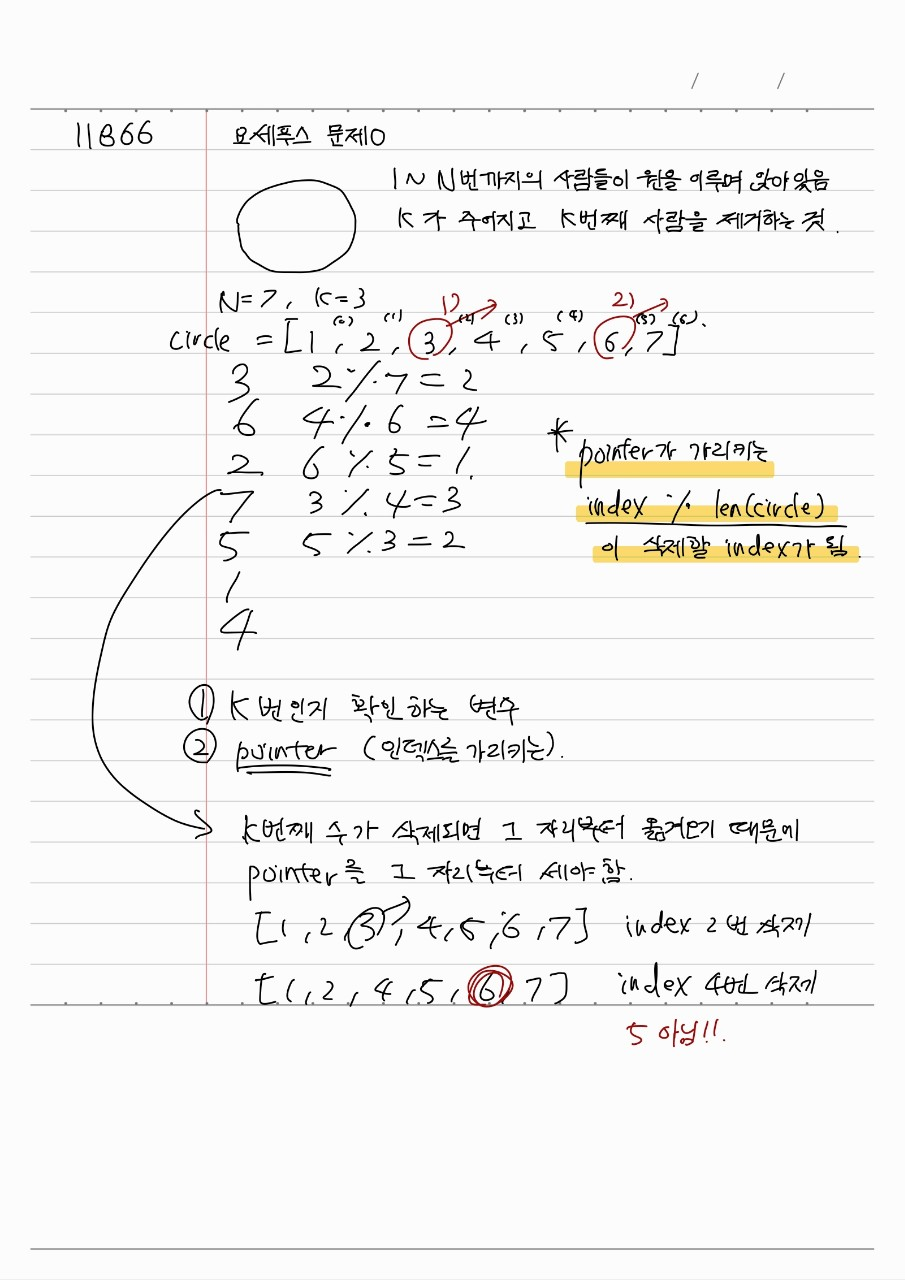 / /
11866 요세푸스 문제0
1 ~ N번까지의 사람들이 원을 이루며 앉아있음
K가 주어지고 K번째 사람을 제거하는 것.
N=7, K=3
1) 2)
(0) (1) (2) (3) (4) (5) (6)
circle = [1, 2, 3, 4, 5, 6, 7].
3 2 % 7 = 2
6 4 % 6 = 4
2 6 % 5 = 1.
7 3 % 4 = 3
5 5 % 3 = 2
1
4
* pointer가 가리키는
index % len(circle)
이 삭제할 index가 됨.
① K번인지 확인하는 변수
② pointer (인덱스를 가리키는).
K번째 수가 삭제되면 그 자리부터 옮겨오기 때문에
pointer를 그 자리부터 세야함.
[1, 2, 3, 4, 5, 6, 7] index 2번 삭제
[1, 2, 4, 5, 6, 7] index 4번 삭제
5 아님!!.